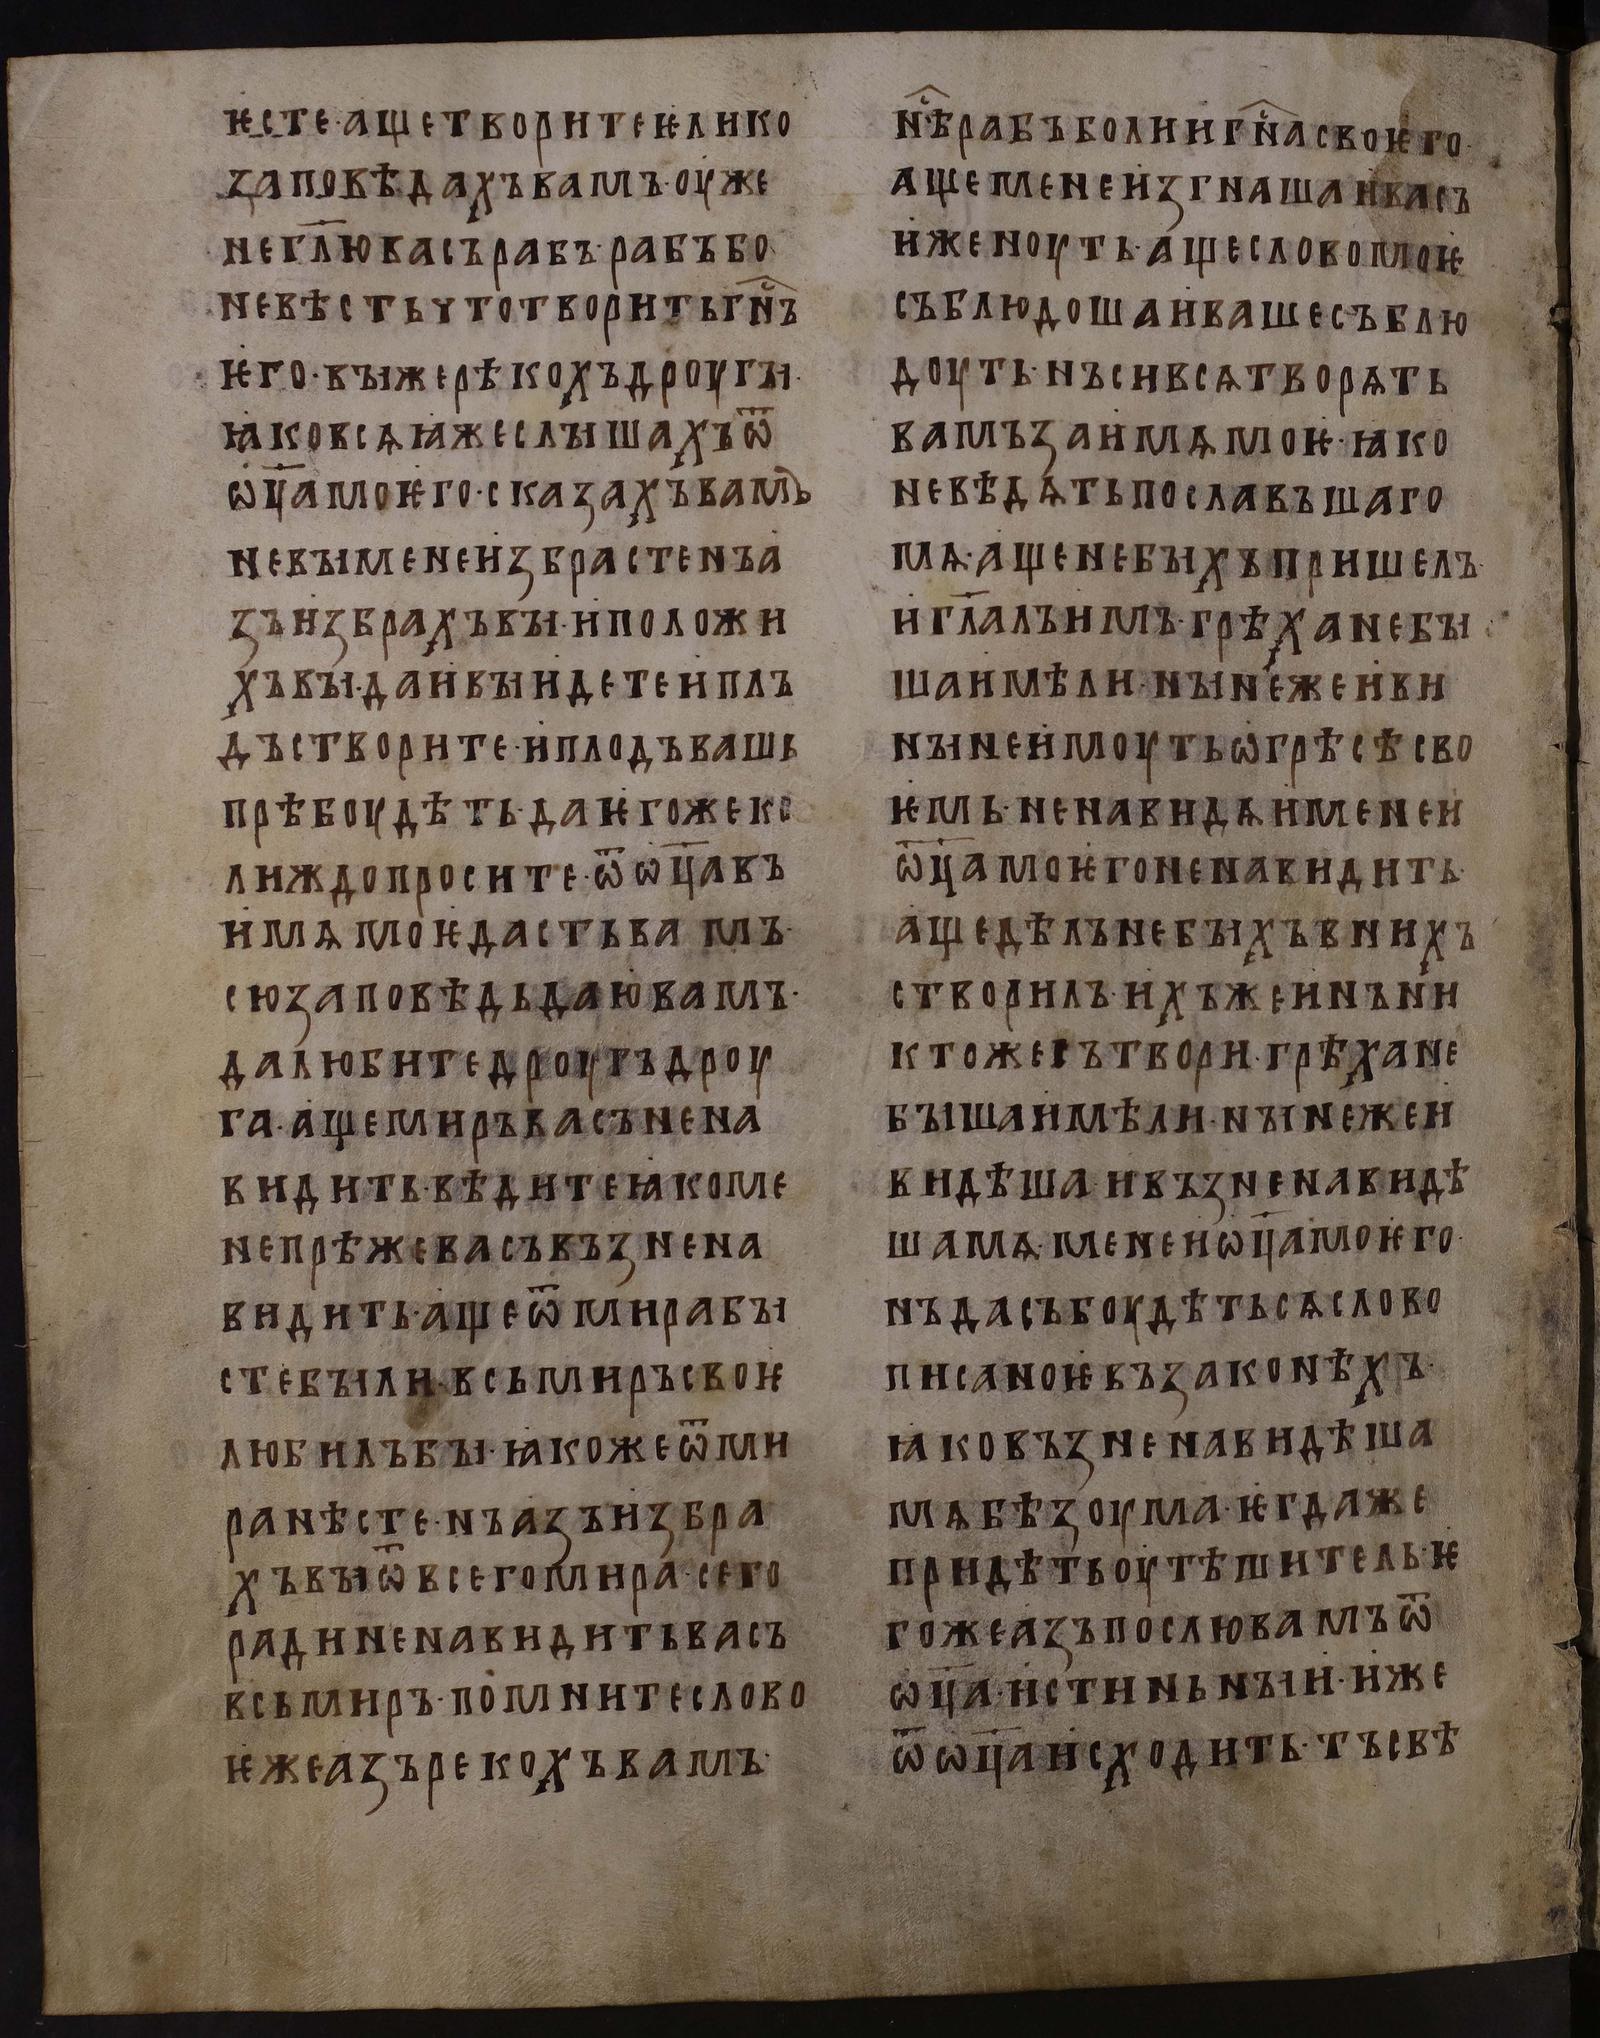 ѥсте·аще творите ѥлико
заповѣдахъ вамъ·оуже
не гл҃ю васъ рабъ·рабъ бо
не вѣсть что творить гн҃ъ
ѥго·вꙑ же рѣкохъ дроугꙑ·
ꙗко всѧ ꙗже слꙑшахъ ѿ
ѡц҃а моѥго·сказахъ вамъ
не вꙑ мене избрасте нъ а
зъ избрахъ вꙑ·и положи
хъ вꙑ·да и вꙑ идете и пло
дъ створите·и плодъ вашь
прѣбоудѣть·да ѥгоже ко
лиждо просите·ѿ ѡц҃а въ
имѧ моѥ дасть вамъ·
сю заповѣдь даю вамъ·
да любите дроугъ дроу
га·аще миръ васъ нена
видить·вѣдите ꙗко ме
не прѣже васъ възнена
видить·аще ѿ мира бꙑ
сте бꙑли·всь миръ своѥ
любилъ бꙑ·ꙗкоже ѿ ми
ра нѣсте·нъ азъ избра
хъ вꙑ ѿ всего мира·сего
ради ненавидить васъ
всь миръ·помните слово
ѥже азъ рекохъ вамъ·
нѣ рабъ болии гн҃а своѥго·
аще мене изгнаша и васъ
иженоуть·аще слово моѥ
съблюдоша и ваше съблю
доуть·нъ си всѧ творѧть
вамъ за имѧ моѥ·ꙗко
не вѣдѧть пославъшаго
мѧ·аще не бꙑхъ пришелъ
и гл҃алъ имъ·грѣха не бꙑ
ша имѣли·нꙑнеже и ви
нꙑ не имоуть ѡ грѣсѣ сво
ѥмь·ненавидѧи мене и
ѿц҃а моѥго ненавидить·
аще дѣлъ не бꙑхъ в нихъ
створилъ·ихъже инъ ни
ктоже сътвори·грѣха не
бꙑша имѣли·нꙑнеже и
видѣша·и възненавидѣ
ша мѧ·мене и ѡц҃а моѥго·
нъ да събоудѣтьсѧ слово
писаноѥ въ законѣхъ·
ꙗко възненавидѣша
мѧ бѣз оума·ѥгдаже
придѣть оутѣшитель·ѥ
гоже азъ послю вамъ ѿ
ѡц҃а·истиньнꙑи·иже
ѿ ѡц҃а исходить·тъ свѣ